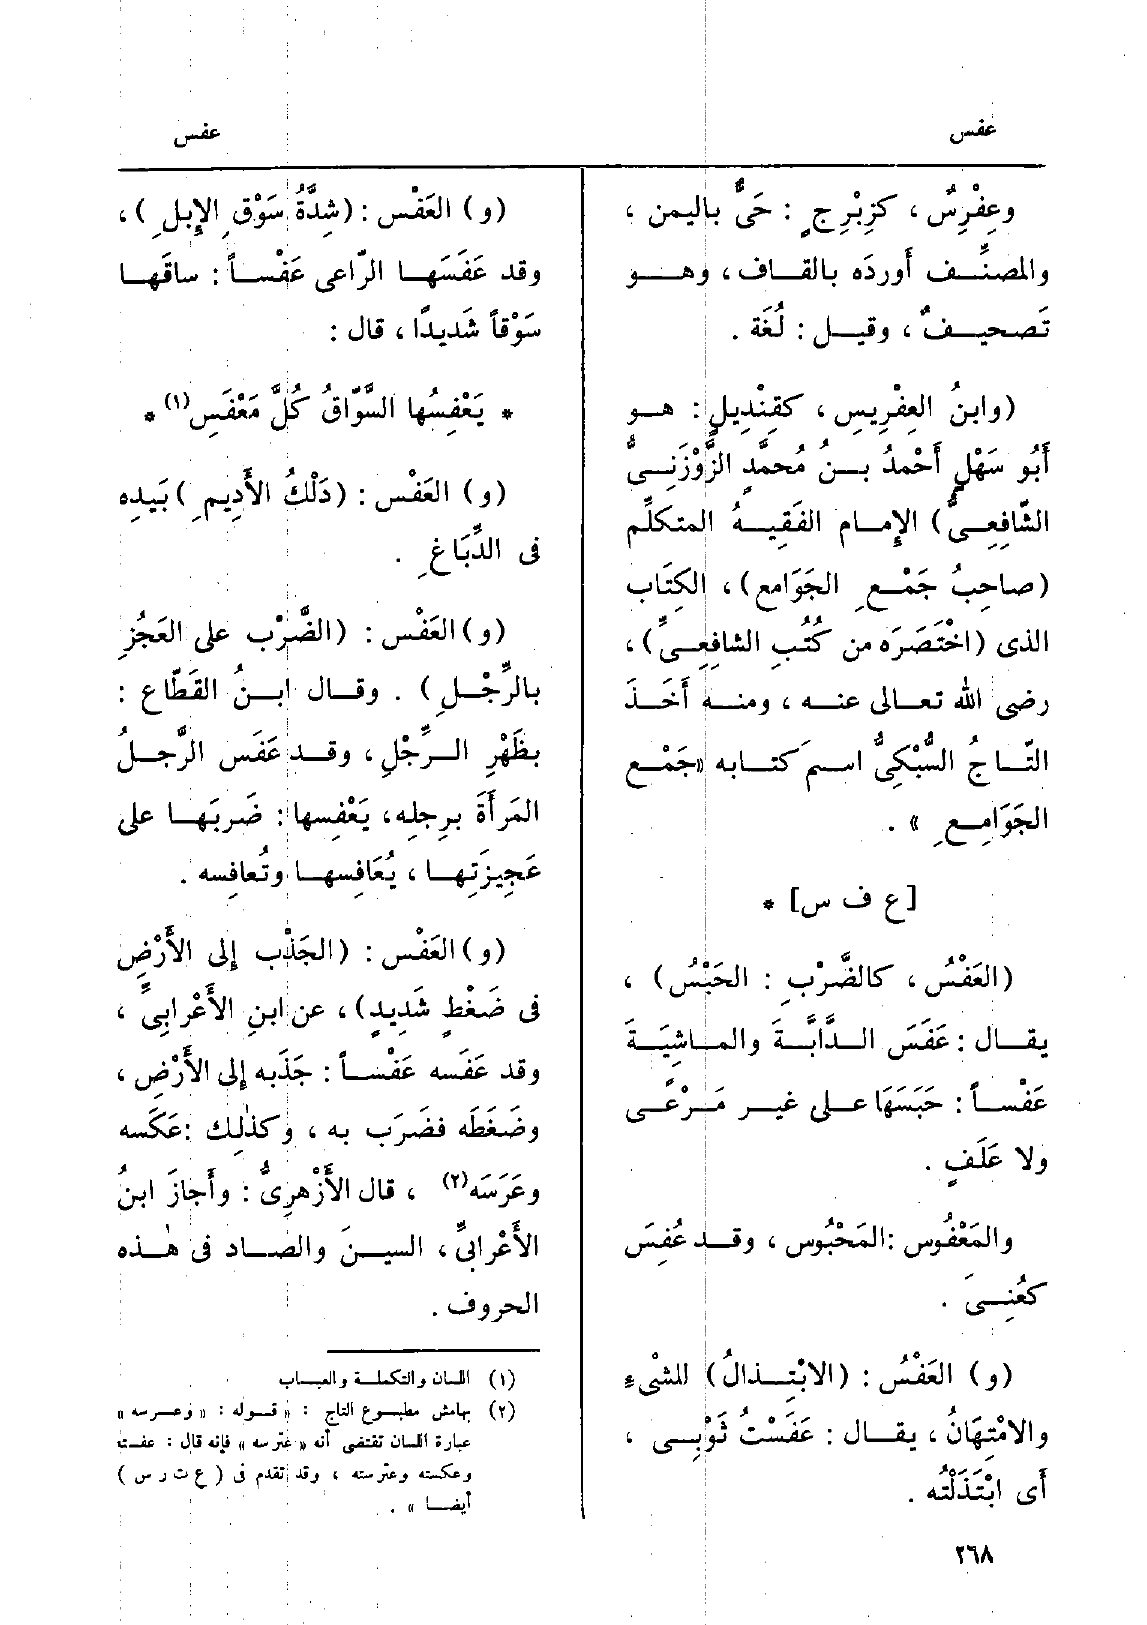 عفس
عفس
وعِفْرِسٌ ، كزِبْرِجٍ : حَىٌّ باليمن ،
والمصنِّف أوردَه بالقاف ، وهو
تَصحيفٌ ، وقيل : لُغَة .
(وابنُ العِفْرِيس ، كقِنْدِيلٍ : هو
أَبُو سَهْلٍ أَحْمدُ بنُ مُحمَّدٍ الزَّوْزَنِىُّ
الشّافِعِىُّ) الإِمام الفَقِيهُ المتكلِّم
(صاحِبُ جَمْعِ الجَوَامع) ، الكتَاب
الذى (اخْتَصَرَه من كُتُبِ الشافِعِىِّ) ،
رضى الله تعالى عنه ، ومنه أَخَذَ
التّاجُ السُّبْكِىُّ اسمَ كتابه «جَمْع
الجَوَامِعِ » .
[ع ف س] *
(العَفْسُ ، كالضَّرْبِ : الحَبْسُ) ،
يقال : عَفَسَ الدَّابَّةَ والماشِيَةَ
عَفْساً : حَبَسَهَا على غير مَرْعًى
ولا عَلَفٍ .
والمَعْفُوس :المَحْبُوس ، وقد عُفِسَ
كعُنِىَ .
(و) العَفْسُ : (الابْتِذالُ) للشْىءِ
والامْتِهَانُ ، يقال : عَفَسْتُ ثَوْبِى ،
أَى ابْتَذَلْتُه .
(و) العَفْس : (شِدَّةُ سَوْقِ الإِبلِ ) ،
وقد عَفَسَها الرّاعى عَفْساً : ساقَها
سَوْقاً شَديدًا ، قال :
* يَعْفِسُها السَّوّاقُ كُلَّ مَعْفَسِ(١) *
(و) العَفْس : (دَلْكُ الأَدِيمِ )بيَدِه
فى الدِّبَاغِ .
(و)العَفْس : (الضَّرْب على العَجُزِ
بالرِّجْلِ) . وقال ابنُ القَطّاع :
بظَهْرِ الرِّجْلِ ، وقد عَفَس الرَّجلُ
المَرأَةَ برِجلِه ، يَعْفِسها : ضَربَها على
عَجِيزَتِها ، يُعَافِسها وتُعافِسه .
(و) العَفْس : (الجَذْب إِلى الأَرْضِ
فى ضَغْطٍ شَدِيدٍ) ، عن ابنِ الأَعْرابِىِّ ،
وقد عَفَسه عَفْساً : جَذَبه إِلى الأَرْضِ ،
وضَغَطَه فضَرَب به ، وكذٰلِك :عَكَسه
وعَرَسَه(٢) ، قال الأَزْهرِىُّ : وأَجازَ ابنُ
الأَعْرابىِّ ، السينَ والصاد فى هٰذه
الحروف .
(١) اللسان والتكملة والعباب
(٢) بهامش مطبوع التاج : « قوله : « وعرسه »
عبارة اللسان تقتضى أنه « عترسه » فإنه قال : عفسته
وعكسته وعترسته ، وقد تقدم فى ( ع ت ر س )
أيضا » .
٢٦٨